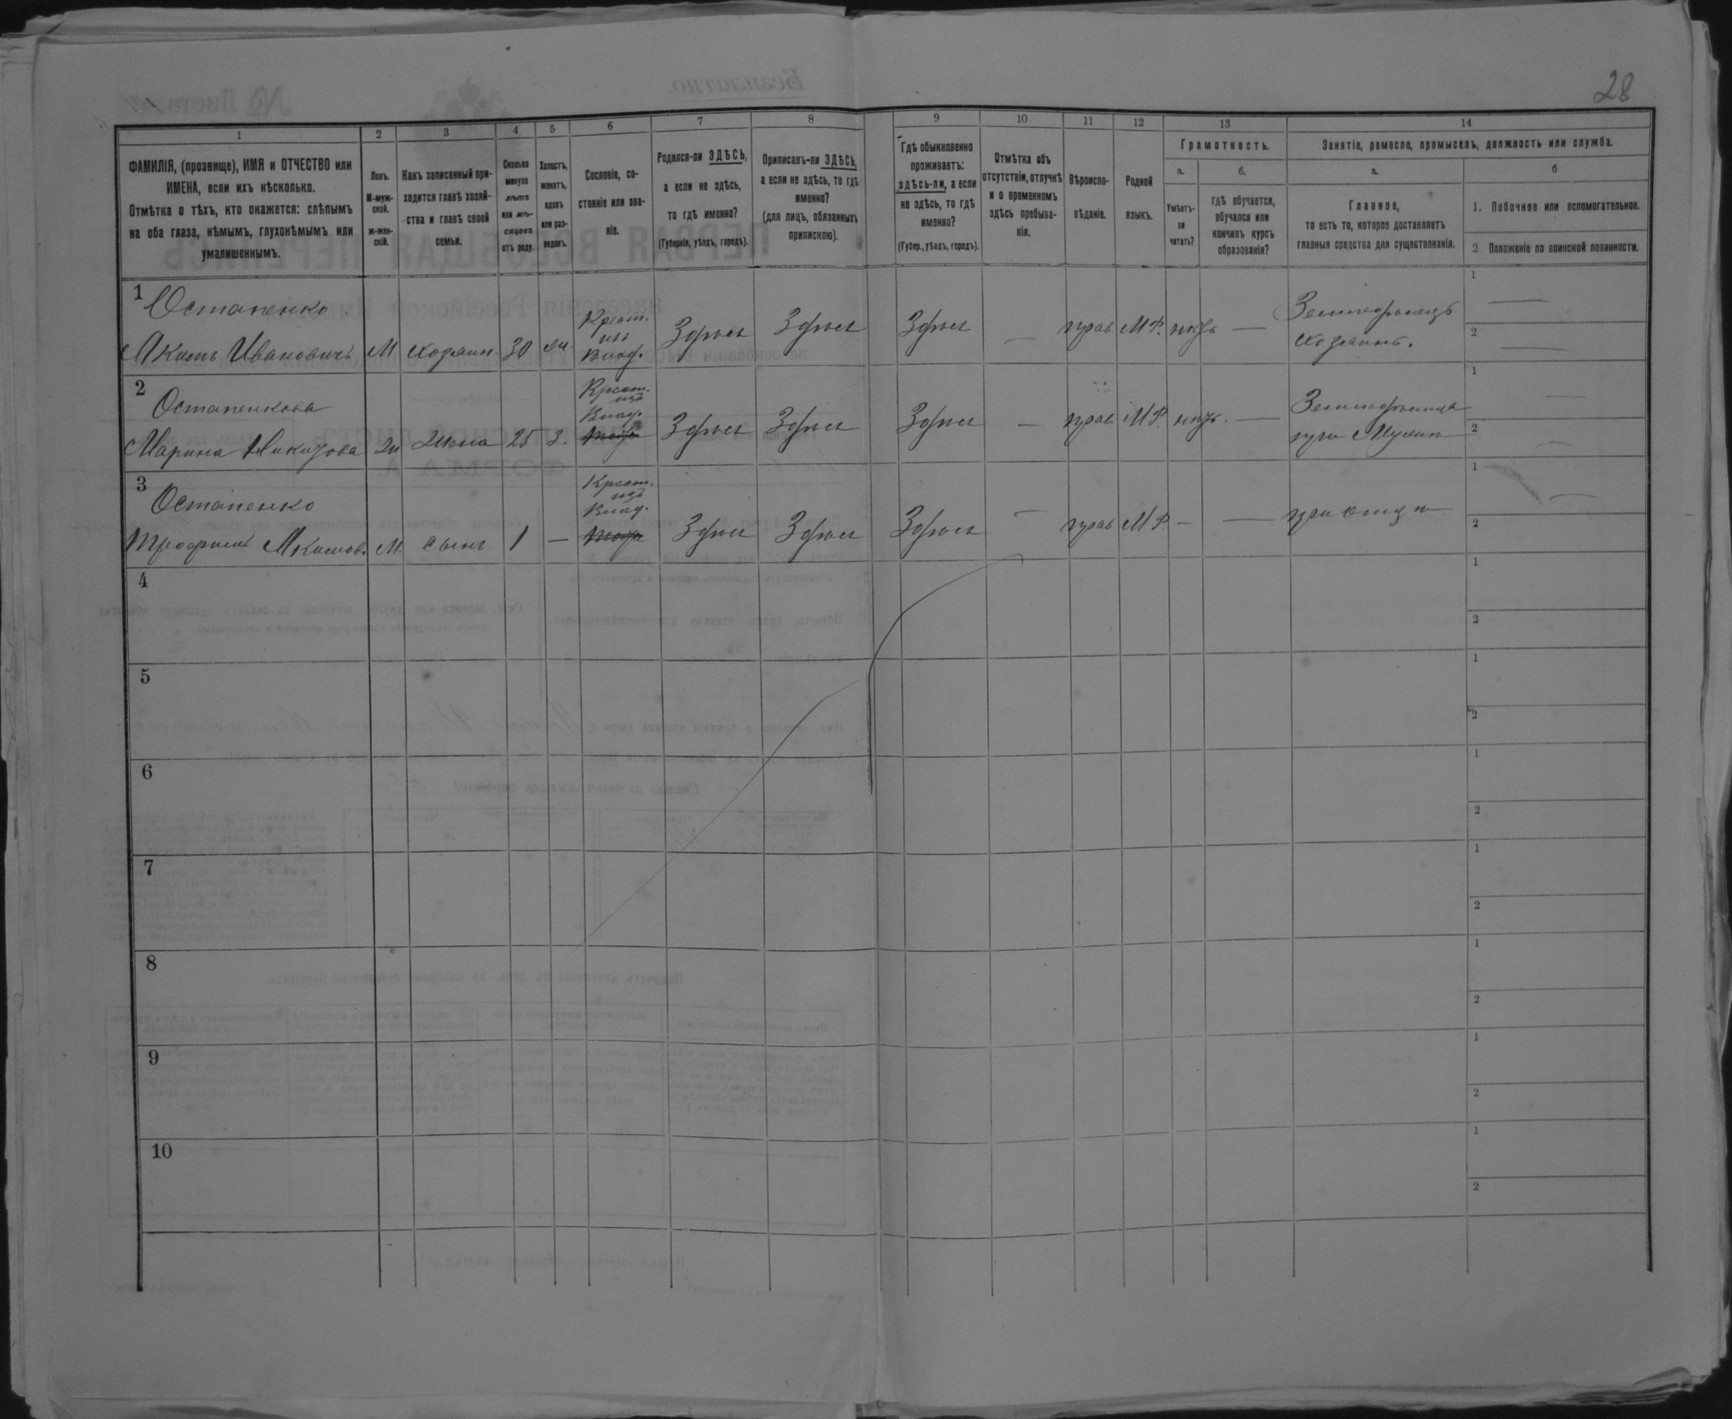 28
1 2 3 4 5 6 7 8 9 10 11 12 13 14
ФАМИЛІЯ, (прозвище), ИМЯ и ОТЧЕСТВО или
ИМЕНА, если ихъ нѣсколько.
Отмѣтка о тѣхъ, кто окажется: слѣпымъ
на оба глаза, нѣмымъ, глухонѣмымъ или
умалишеннымъ.
Полъ.
М-муж-
ской.
ж-жен-
скій.
Какъ записанный при-
ходится главѣ хозяй-
ства и главѣ своей
семьи.
Сколько
минуло
лѣтъ
или мѣ-
сяцевъ
отъ роду.
Холостъ,
женатъ,
вдовъ
или раз-
веденъ.
Сословіе, со-
стояніе или зва-
ніе.
Родился-ли ЗДѢСЬ,
а если не здѣсь,
то гдѣ именно?
(Губернія, уѣздъ, городъ).
Приписанъ-ли ЗДѢСЬ,
а если не здѣсь, то гдѣ
именно?
(для лицъ, обязанныхъ
припискою).
Гдѣ обыкновенно
проживаетъ:
здѣсь-ли, а если
не здѣсь, то гдѣ
именно?
(Губер., уѣздъ, городъ).
Отмѣтка объ
отсутствіи, отлучкѣ
и о временномъ
здѣсь пребыва-
ніи.
Вѣроиспо-
вѣданіе.
Родной
языкъ.
Грамотность.
а.
Умѣетъ-
ли
читать?
б.
гдѣ обучается,
обучался или
кончилъ курсъ
образованія?
Занятіе, ремесло, промыселъ, должность или служба.
а.
Главное,
то есть то, которое доставляетъ
главныя средства для существованія.
б
1. Побочное или вспомогательное.
2 Положеніе по воинской повинности.
1 Остапенко
Акимъ Ивановичъ М хозяин. 30 Крест. Здѣсь Здѣсь Здѣсь — прав М.Р. нѣтъ — Земледѣлецъ
хозяинъ.
1 —
2 —
2 Остапенкова
Марина жена 25 З. Крест. Здѣсь Здѣсь Здѣсь — прав М.Р. нѣтъ. — Земледѣлица
при Мужѣ
1 —
2 —
3 Остапенко
Трофимъ Акимов. М. сынъ 1 — Крест. Здѣсь Здѣсь Здѣсь — прав М.Р. — — при отцѣ
1 —
2
4
1
2
5
1
2
6
1
2
7
1
2
8
1
2
9
1
2
10
1
2